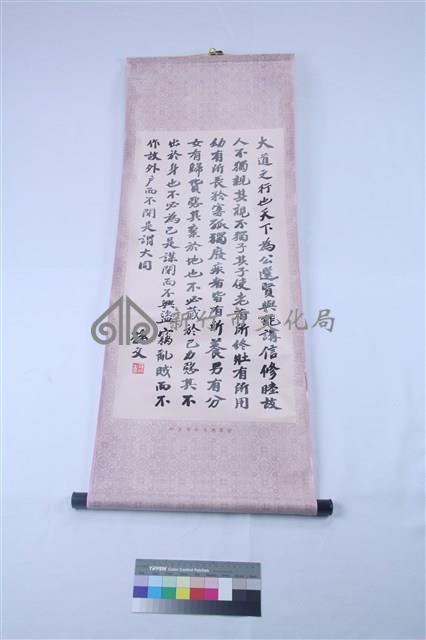 大道之行也天下為公選賢與能講信修睦故
人不獨親其親不獨子其子使老有所終壯有所用
幼有所長矜寡孤獨廢疾者皆有所養男有分
女有歸貨惡其棄於地也不必藏於己力惡其不
出於身也不必為己是謀閉而不興盜竊亂賊而不
作故外戶而不閉是謂大同
孫文
新竹市文化局
TIFFEN Color Control Patches